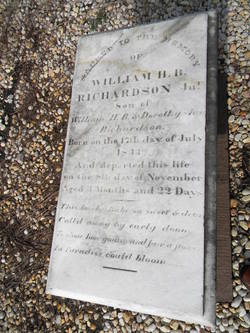 SACRED TO THE MEMORY
OF
WILLIAM H. B.
RICHARDSON Jnr
Son of
William H. B. & Dorothy Ann
Richardson.
Born on the 17th day of July
And departed this life
on the 9th day of November
Aged 3 Months and 22 Days
This lovely so sweet &
Call'd away by early doom
In Paradise could bloom